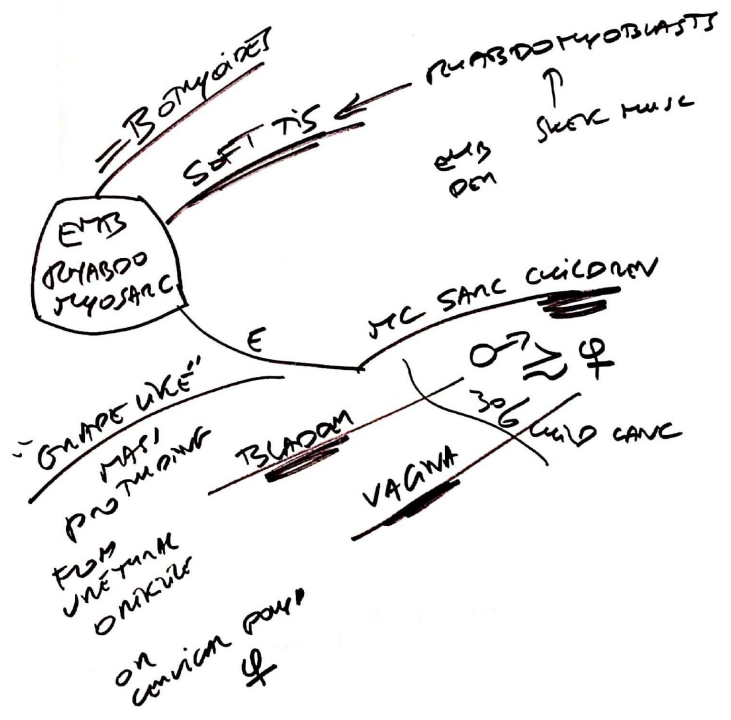 = BOTRYOIDES
SOFT TIS
← RHABDOMYOBLASTS
↑
SKEL MUSC
EMB
DER
EMB
RHABDO
MYOSARC
E
MC SARC CHILDREN
♂ ≥ ♀
3%
CHILD CANC
"GRAPE LIKE"
MASS
PROTRUDING
FROM
URETHRAL
ORIFICE
OR
CERVICAL POLYP
♀
BLADDER
VAGINA